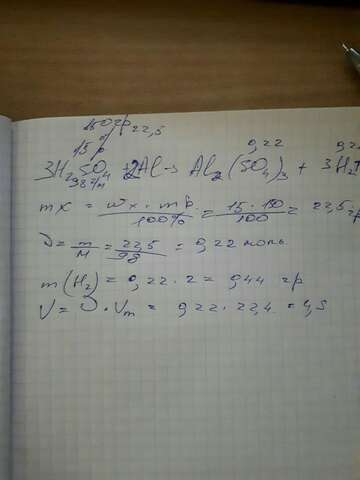 150 гр 22,5
15 %
0,22
3H2SO4 + 2Al → Al2(SO4)3 + 3H2↑
98 г/м
mx = wx · mр / 100% = 15 · 150 / 100 = 22,5 гр
υ = m / M = 22,5 / 98 = 0,22 моль
m(H2) = 0,22 · 2 = 0,44 гр
V = υ · Vm = 0,22 · 22,4 =